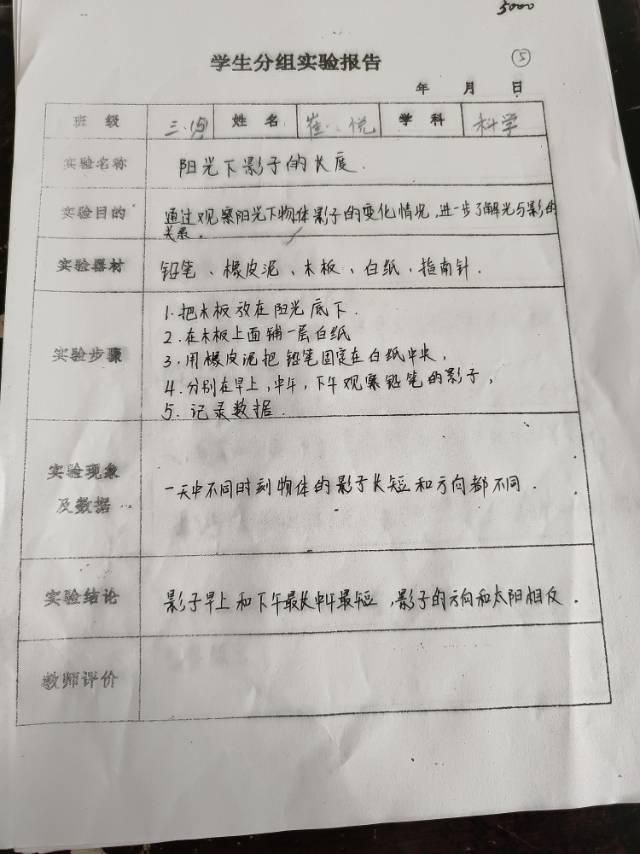 5000
学生分组实验报告 ⑤
年 月 日
班 级 三. 姓 名 崔 悦 学 科 科学
实验名称 阳光下影子的长度.
实验目的 通过观察阳光下物体影子的变化情况,进一步了解光与影的
关系。
实验器材 铅笔、橡皮泥、木板、白纸、指南针.
实验步骤
1.把木板放在阳光底下.
2.在木板上面铺一层白纸
3.用橡皮泥把铅笔固定在白纸中央,
4.分别在早上,中午,下午观察铅笔的影子,
5.记录数据.
实验现象
及数据
一天中不同时刻物体的影子长短和方向都不同.
实验结论 影子早上和下午最长中午最短,影子的方向和太阳相反.
教师评价